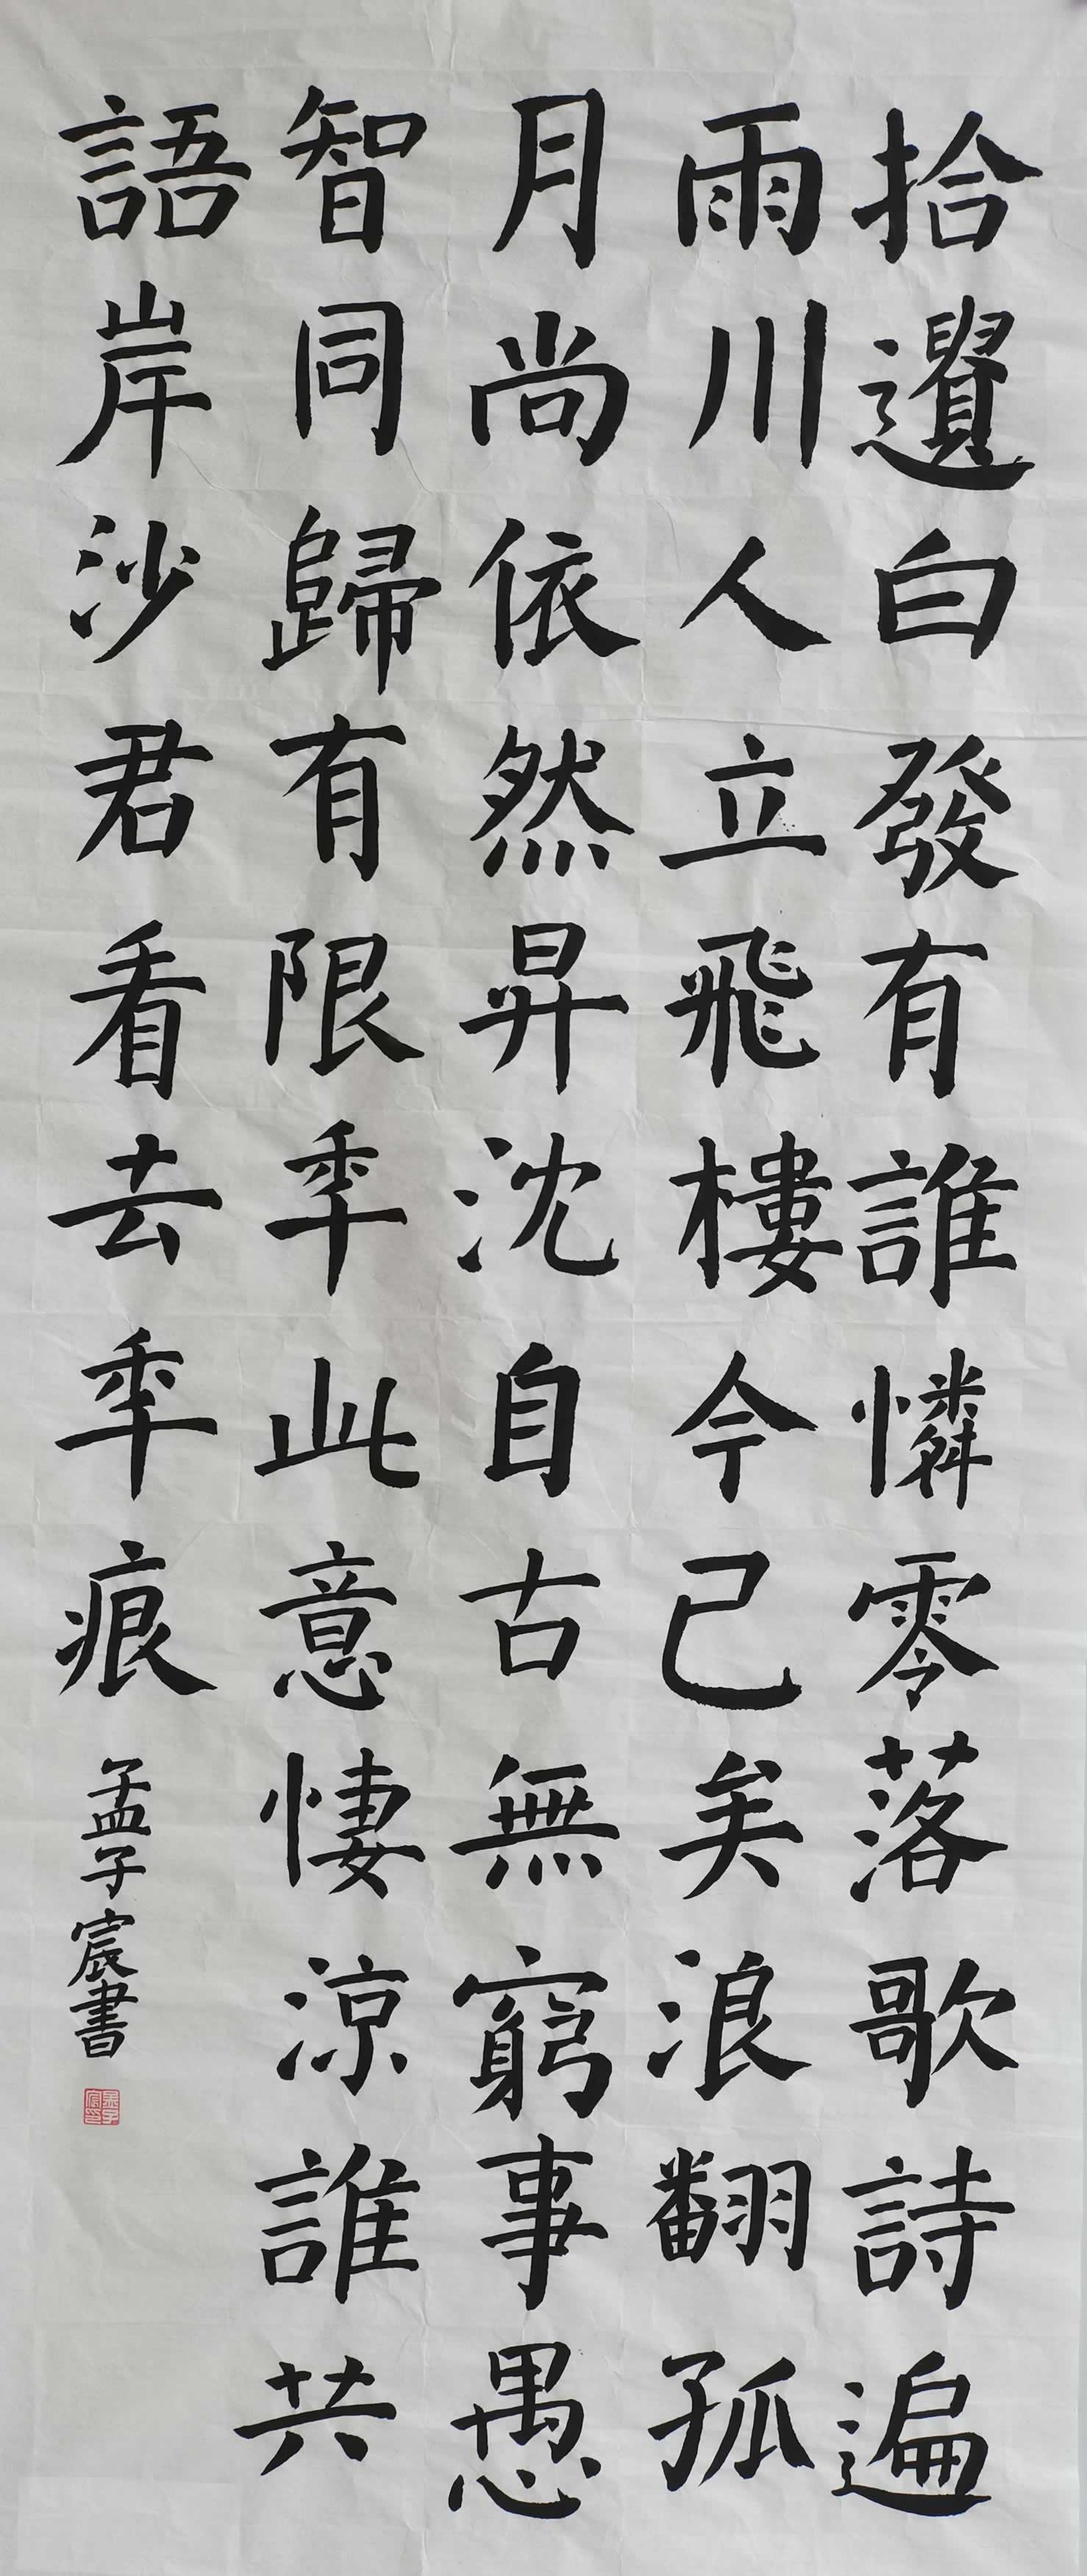 拾遺白發有誰憐零落歌詩遍
雨川人立飛樓今已矣浪翻孤
月尚依然昇沈自古無窮事愚
智同歸有限年此意悽涼誰共
語岸沙君看去年痕
孟子宸書